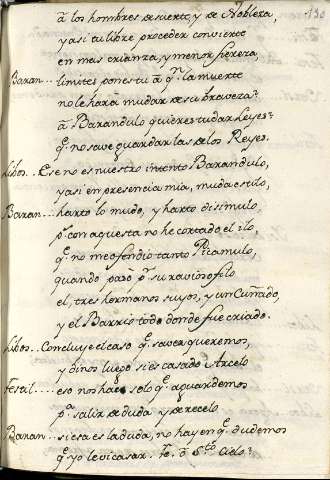 â los hombres de suerte, y de Nobleza,
y asi tu libre proceder convierte
en mas crianza, y menor fiereza,
Baran... limites pones tu â qn. la muerte
no le hará mudar de su braveza?
â Barandulo quieres tu dar Leyes?
q.e no save guardar las de los Reyes.
Libos... Ese no es nuestro intento Barandulo,
y asi en presencia mia, muda estilo,
Baran... harto lo mudo, y harto disimulo,
p.s con aquesta no he cortado el ilo,
q.e no me ofendió tanto Picamulo,
quando pasó p.r su ravioso filo
el, tres hermanos suyos, y un Cuñado,
y el Barrio todo donde fue criado.
Libos... Concluye el caso q.e saver queremos,
y dinos luego si es casado Arcelo
Festil.... eso nos hace solo q.e aguardemos
p.a salir de duda y de recelo
Baran... si esa es la duda, no hay en q.e dudemos
q.e yo le vi casar. Fe. ô S.to Cielo?